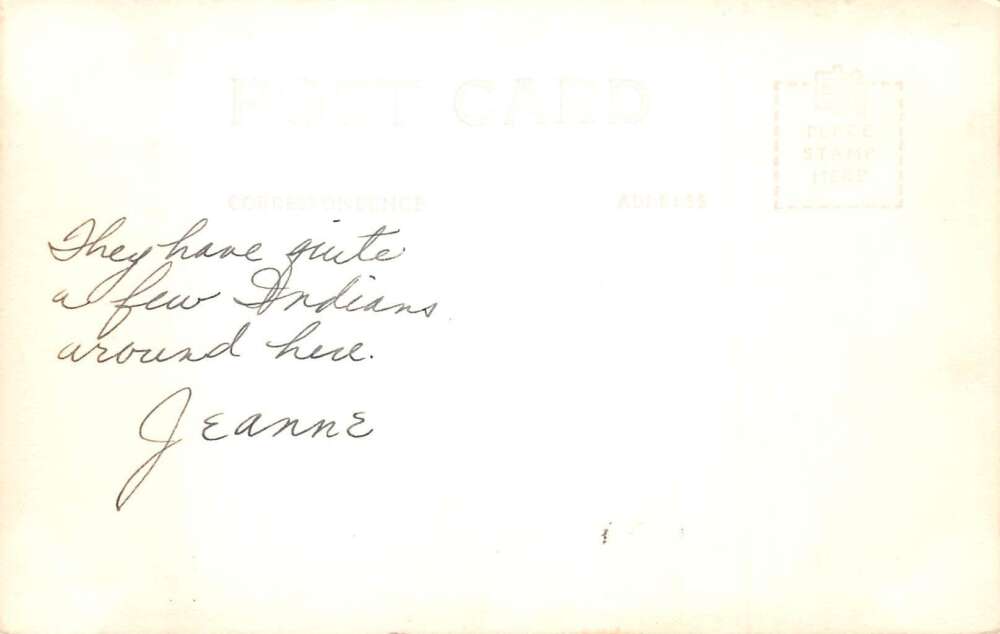 POST CARD
PLACE
STAMP
HERE
CORRESPONDENCE
ADDRESS
They have quite
a few Indians
around here.
Jeanne